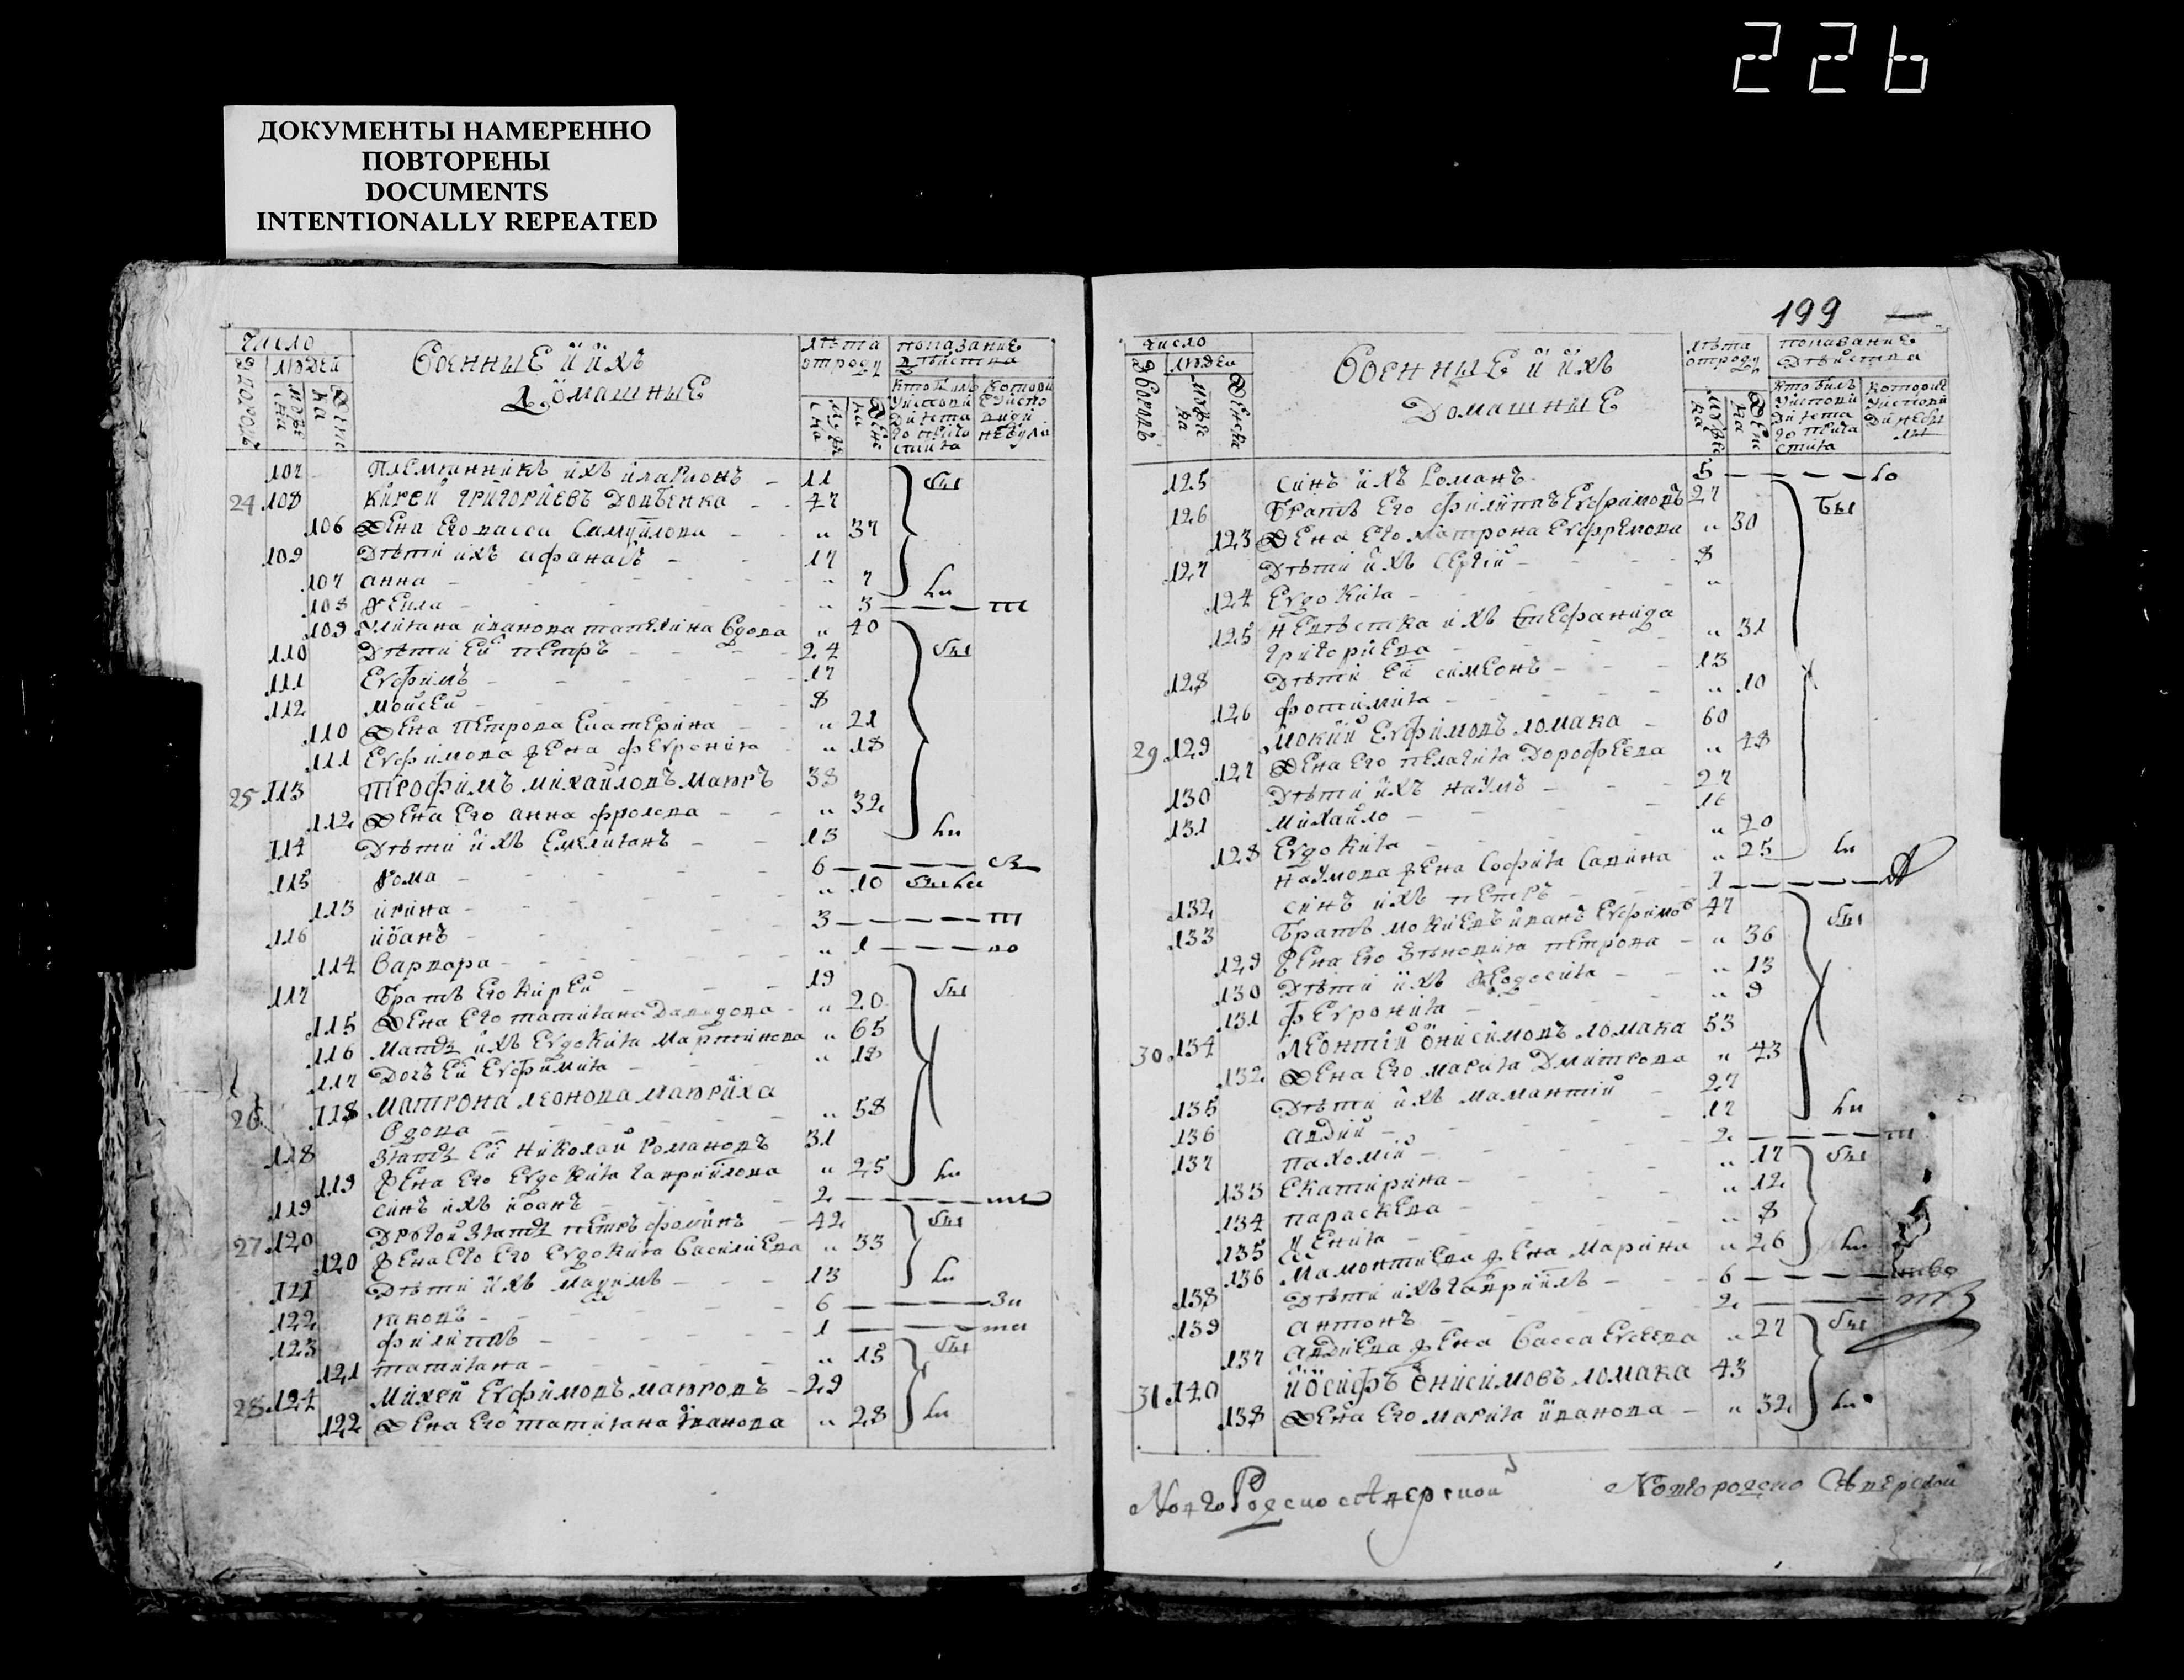 226
ДОКУМЕНТЫ НАМЕРЕННО
ПОВТОРЕНЫ
DOCUMENTS
INTENTIONALLY REPEATED
Число
людей
Военные и ихъ
Домашные
лѣта
отроду
показание
дѣйства
107 племянникъ ихъ иларионъ 11
24 108 Кирей григориевъ Довбенка 47
106 Жена его васса Самуилова 37
109 Дѣти ихъ афанасъ 17
107 анна 7
108 ѳекла 3
109 Улитана иванова вдова 40
110 Дѣти ей петръ 24
111 Евфимъ 17
112 Моисей 8
110 Жена петрова Екатерина 21
111 Евфимова жена февронія 18
25 113 трофимъ михайловъ мавръ 38
112 Жена его анна фролова 32
114 Дѣти ихъ Емелианъ 13
115 ѳома 6
113 ирина 10
116 иванъ 3
114 варвара 1
117 братъ его Кирей 19
115 Жена его татиана Давидова 20
116 Мать ихъ Евдокия Мартинова 65
117 Дочь ей Евфимия 18
26 118 матрона леонова мавриха
вдова 58
118 Зять ей николай романовъ 31
119 жена его Евдокия гавриилова 25
119 синъ ихъ иванъ 2
27 120 Другой зять петръ фоминъ 42
120 жена его Евдокия василиева 33
121 Дѣти ихъ 13
122 яковъ 6
123 филиппъ 1
121 татиана 15
28 124 Михей Евфимовъ мавровъ 29
122 Жена его татиана иванова 28
199
Число
людей
Военные и ихъ
Домашные
лѣта
отроду
показание
дѣйства
125 синъ ихъ романъ 5
126 братъ его филиппъ Евфимовъ 27
123 Жена его матрона Евфремова 30
127 Дѣти ихъ сергій 8
124 Евдокия
125 невѣстка ихъ стефанида
григориева 31
128 Дѣти ей симеонъ 13
126 фотиния 10
29 129 Мокий Евфимовъ ломака 60
127 Жена его пелагия Дорофеева 48
130 Дѣти ихъ наумъ 27
131 михайло 16
128 Евдокия 20
наумова жена софия савина 25
132 синъ ихъ петръ 1
133 братъ мокиевъ иванъ Евфимов 47
129 жена его Зѣновия петрова 36
130 Дѣти ихъ ѳеодосия 13
131 феврония 9
30 134 леонтий онисимовъ ломака 53
132 Жена его мария Дмитрова 43
135 Дѣти ихъ мамантий 27
136 авдий 17
137 пахомий 2
133 Екатирина 17
134 параскева 12
135 ксения 8
136 мамонтиева жена марина 26
138 Дѣти ихъ гавриилъ 6
139 антонъ 2
137 авдиева жена васса Евсеева 27
31 140 иосифъ онисимовъ ломака 43
138 Жена его мария иванова 32
Новгородско Сѣверской
Новгородско Сѣверской